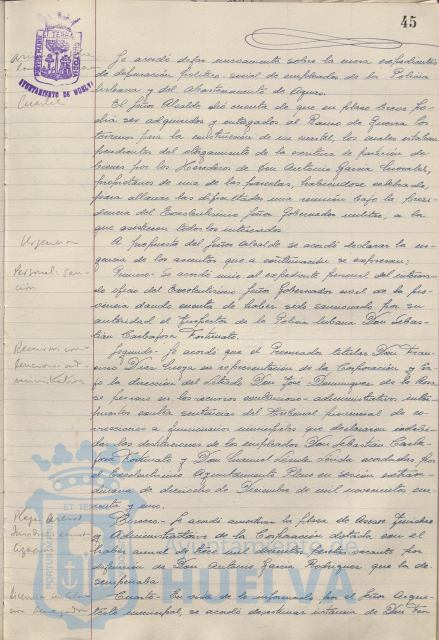 45
AYUNTAMIENTO DE HUELVA
Cuartel
Se acordó dejar nuevamente sobre la mesa expedientes
de depuración político-social de empleados de la Policía
Urbana y del Abastecimiento de Aguas.
El Señor Alcalde dió cuenta de que en plazo breve po-
drán ser adquiridos y entregados al Ramo de Guerra los
terrenos para la construcción de un cuartel, los cuales estaban
pendientes del otorgamiento de la escritura de partición de
bienes por los Herederos de Don Antonio García
propietarios de una de las parcelas, habiéndose celebrado,
para allanar las dificultades una reunión bajo la Presi-
dencia del Excelentísimo Señor Gobernador militar, a la
que asistieron todos los interesados.
Urgencia
A propuesta del Señor Alcalde se acordó declarar la ur-
gencia de los asuntos que a continuación se expresan:
Personal: san-
ción
Primero- Se acordó unir al expediente personal del interesa-
do oficio del Excelentísimo Señor Gobernador civil de la Pro-
vincia dando cuenta de haber sido sancionado por su
autoridad el Subjefe de la Policía Urbana Don Sebas-
tián Carbajosa Fortunato.
Recursos con-
tencioso-ad-
ministrativos
Segundo- Se acordó que el Procurador titular Don Fran-
cisco Díaz en representación de la Corporación y ba-
jo la dirección del Letrado Don José Domínguez de la
se persone en los recursos contencioso-administrativos inter-
puestos contra sentencias del Tribunal provincial de
a funcionarios municipales que declararon
las destituciones de los empleados Don Sebastián Carba-
josa Fortunato y Don Manuel acordadas por
el Excelentísimo Ayuntamiento Pleno en sesión extraor-
dinaria de dieciocho de de mil novecientos cua-
renta y uno.
Plaza Asesor
Jurídico
Tercero- Se acordó amortizar la plaza de Asesor Jurídico
y Administrativo de la Corporación dotada con el
haber anual de mil pesetas, vacante por
defunción de Don Antonio García Rodríguez que la de-
sempeñaba.
Cuarto- En vista de lo informado por el Señor Arqui-
tecto municipal, se acordó desestimar instancia de Don Fran-
Ayuntamiento de
HUELVA